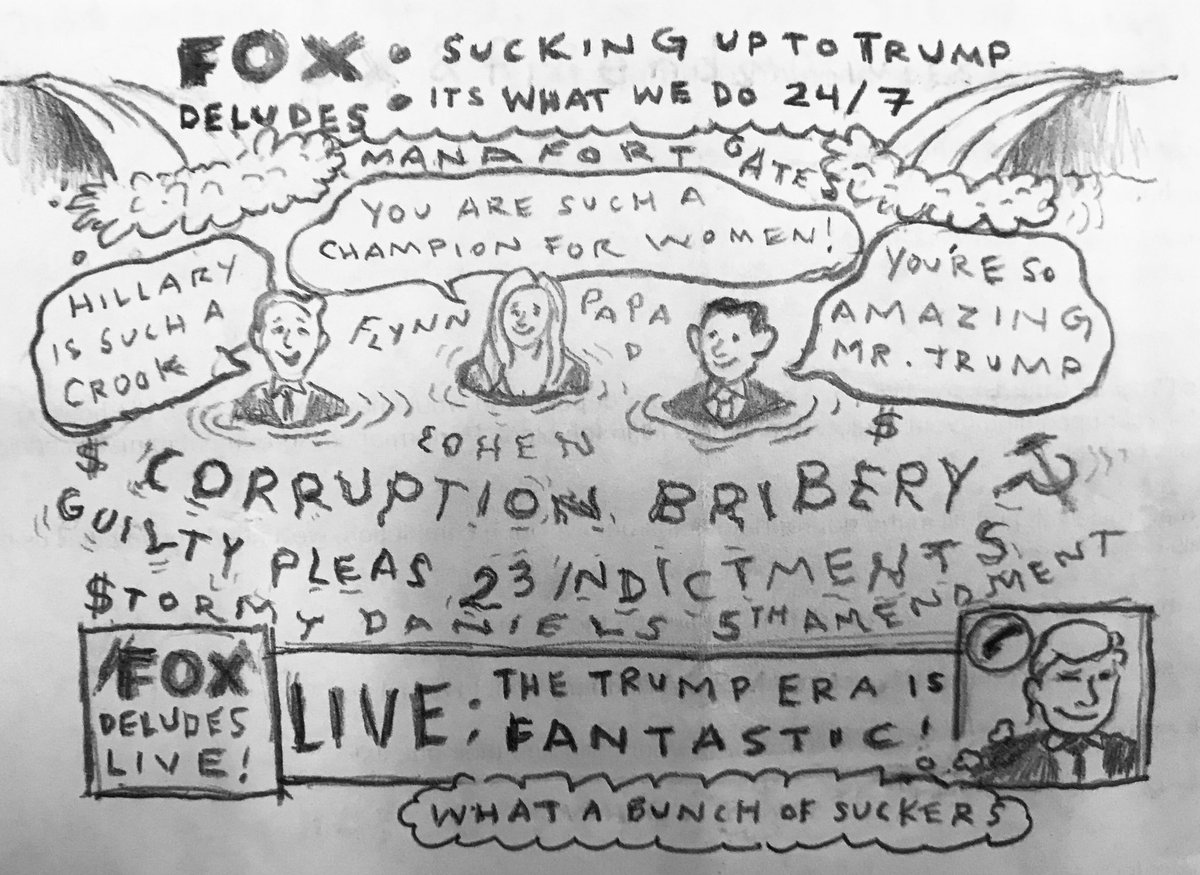 FOX • SUCKING UP TO TRUMP
DELUDES • ITS WHAT WE DO 24/7
MANAFORT GATES
YOU ARE SUCH A
CHAMPION FOR WOMEN!
HILLARY
IS SUCH A
CROOK
YOU'RE SO
AMAZING
MR. TRUMP
FLYNN
PAPA
D
COHEN
$
$
CORRUPTION BRIBERY
GUILTY PLEAS 23 INDICTMENTS
$TORMY DANIELS 5TH AMENDMENT
FOX
DELUDES
LIVE!
LIVE: THE TRUMP ERA IS
FANTASTIC!
WHAT A BUNCH OF SUCKERS